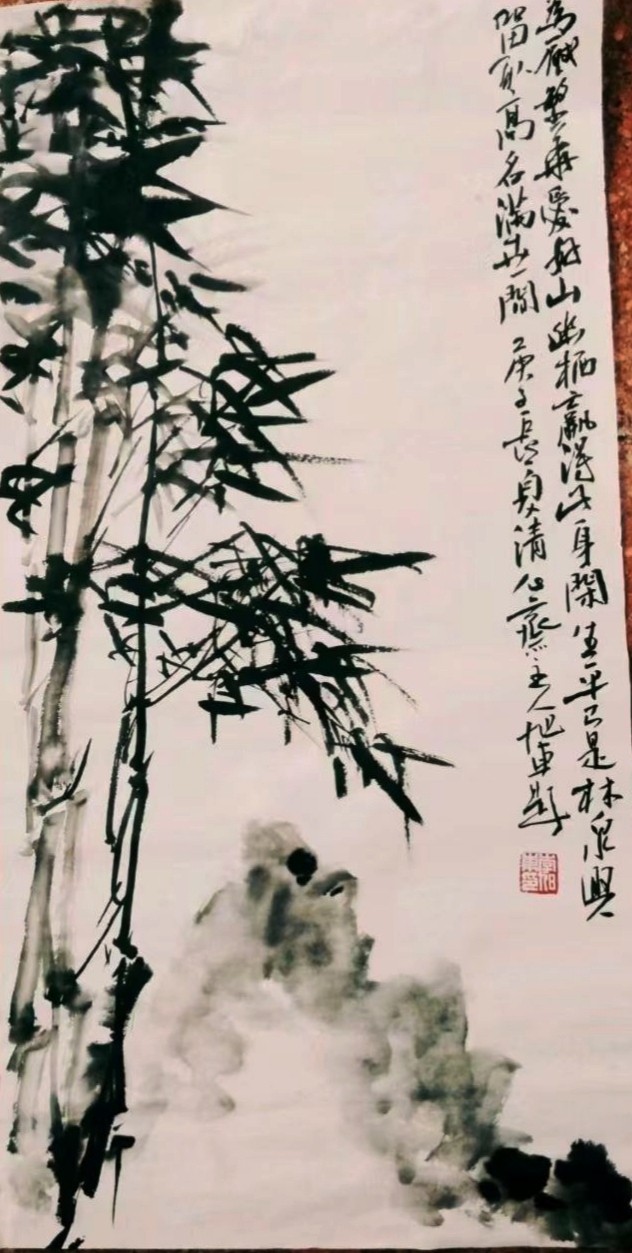 為厭繁華愛好山幽栖贏得此身閑生平已是林泉興
留取高名滿世間 庚子長夏清心齋主人旭東題